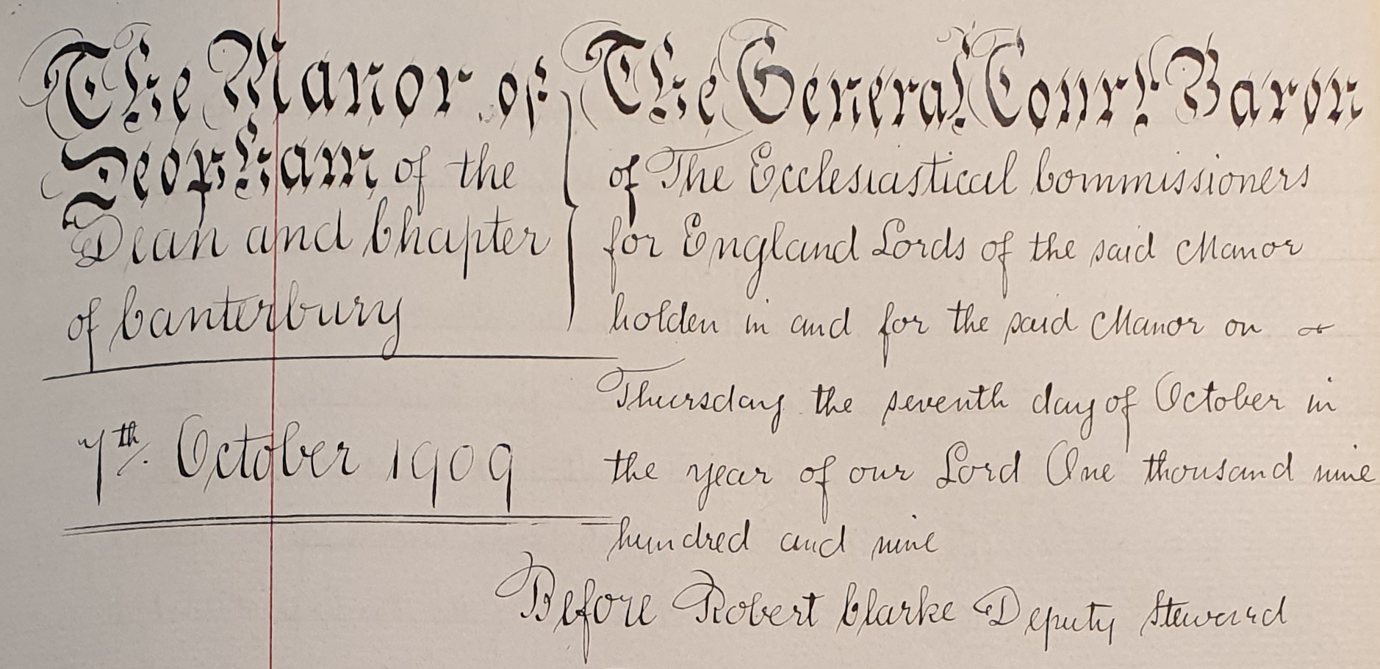 The Manor of
Deopham of the
Dean and Chapter
of Canterbury
7th. October 1909
The General Court Baron
of The Ecclesiastical Commissioners
for England Lords of the said Manor
holden in and for the said Manor on
Thursday the seventh day of October in
the year of our Lord One thousand nine
hundred and nine
Before Robert Clarke Deputy Steward